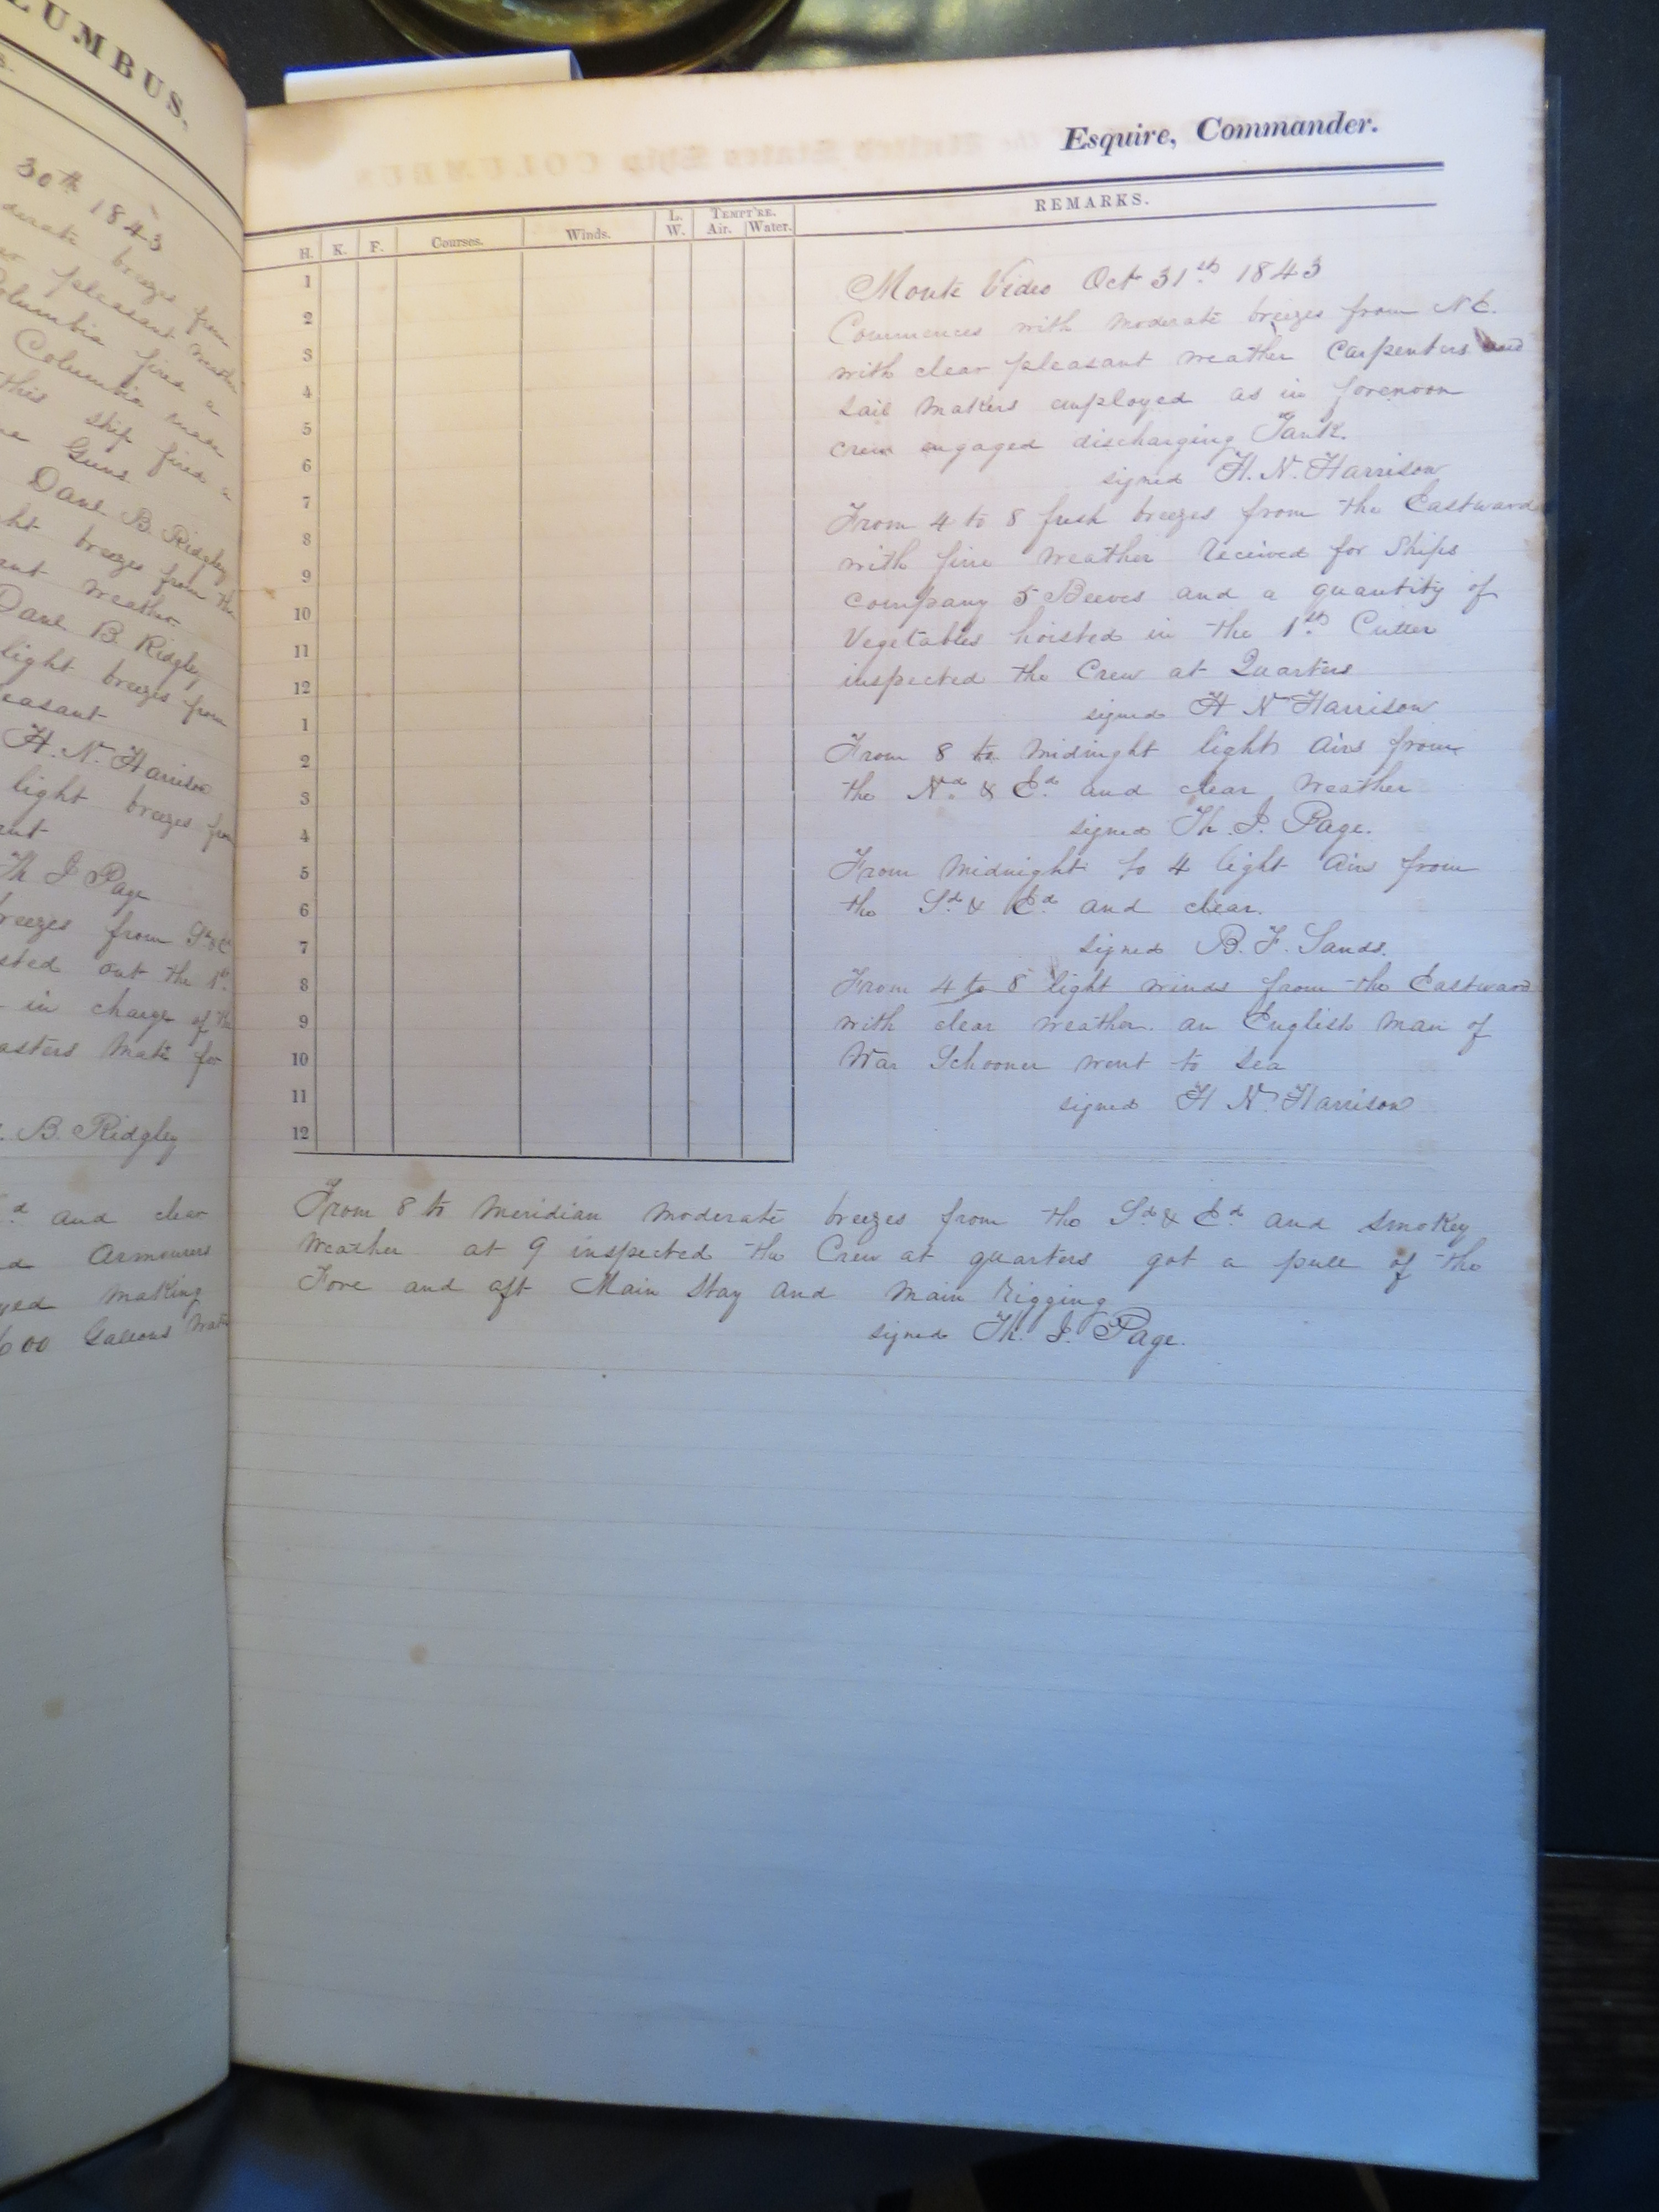 LUMBUS,
30th 1843
derate breezes from
pleasant weather
Columbia fired a
Columbia made
this ship fired a
Guns
Danl B. Ridgley
ght breezes from the
weather
Danl. B. Ridgley
light breezes from
easant
H. N. Harrison
light breezes from
Th J Page
breezes from Sd & Ed
sted out the 1st
in charge of the
asters Mate for
B. Ridgley
and clear
Armourers
yed making
600 Gallons Water
Esquire, Commander.
H. K. F. Courses. Winds. L. W. TEMPT'RE. Air. Water. REMARKS.
1
2
3
4
5
6
7
8
9
10
11
12
1
2
3
4
5
6
7
8
9
10
11
12
Monte Video Oct 31st 1843
Commences with moderate breezes from NE.
with clear pleasant weather Carpenters and
Sail Makers employed as in forenoon
crew engaged discharging Tank.
signed H. N. Harrison
From 4 to 8 fresh breezes from the Eastward
with fine weather received for Ships
company 5 Beeves and a quantity of
Vegetables hoisted in the 1st Cutter
inspected the Crew at Quarters
signed H N Harrison
From 8 to Midnight light airs from
the Nd & Ed and clear weather
signed Th. J. Page.
From Midnight to 4 light airs from
the Sd & Ed and clear.
signed B. F. Sands.
From 4 to 8 light winds from the Eastward
with clear weather. an English Man of
War Schooner went to Sea
signed H N. Harrison
From 8 to Meridian moderate breezes from the Sd & Ed and Smokey
Weather at 9 inspected the Crew at quarters got a pull of the
Fore and aft Main Stay and Main Rigging
signed Th. J. Page.